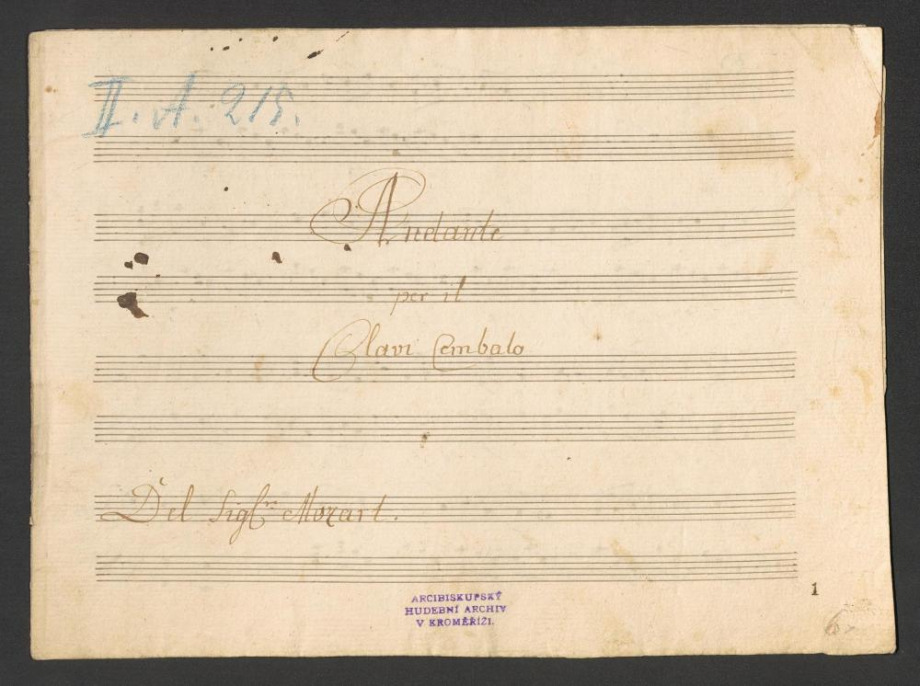 II. A. 215.
Andante
per il
Clavi Cembalo
Del Sigre Mozart.
ARCIBISKUPSKÝ
HUDEBNÍ ARCHIV
V KROMĚŘÍŽI.
1
6